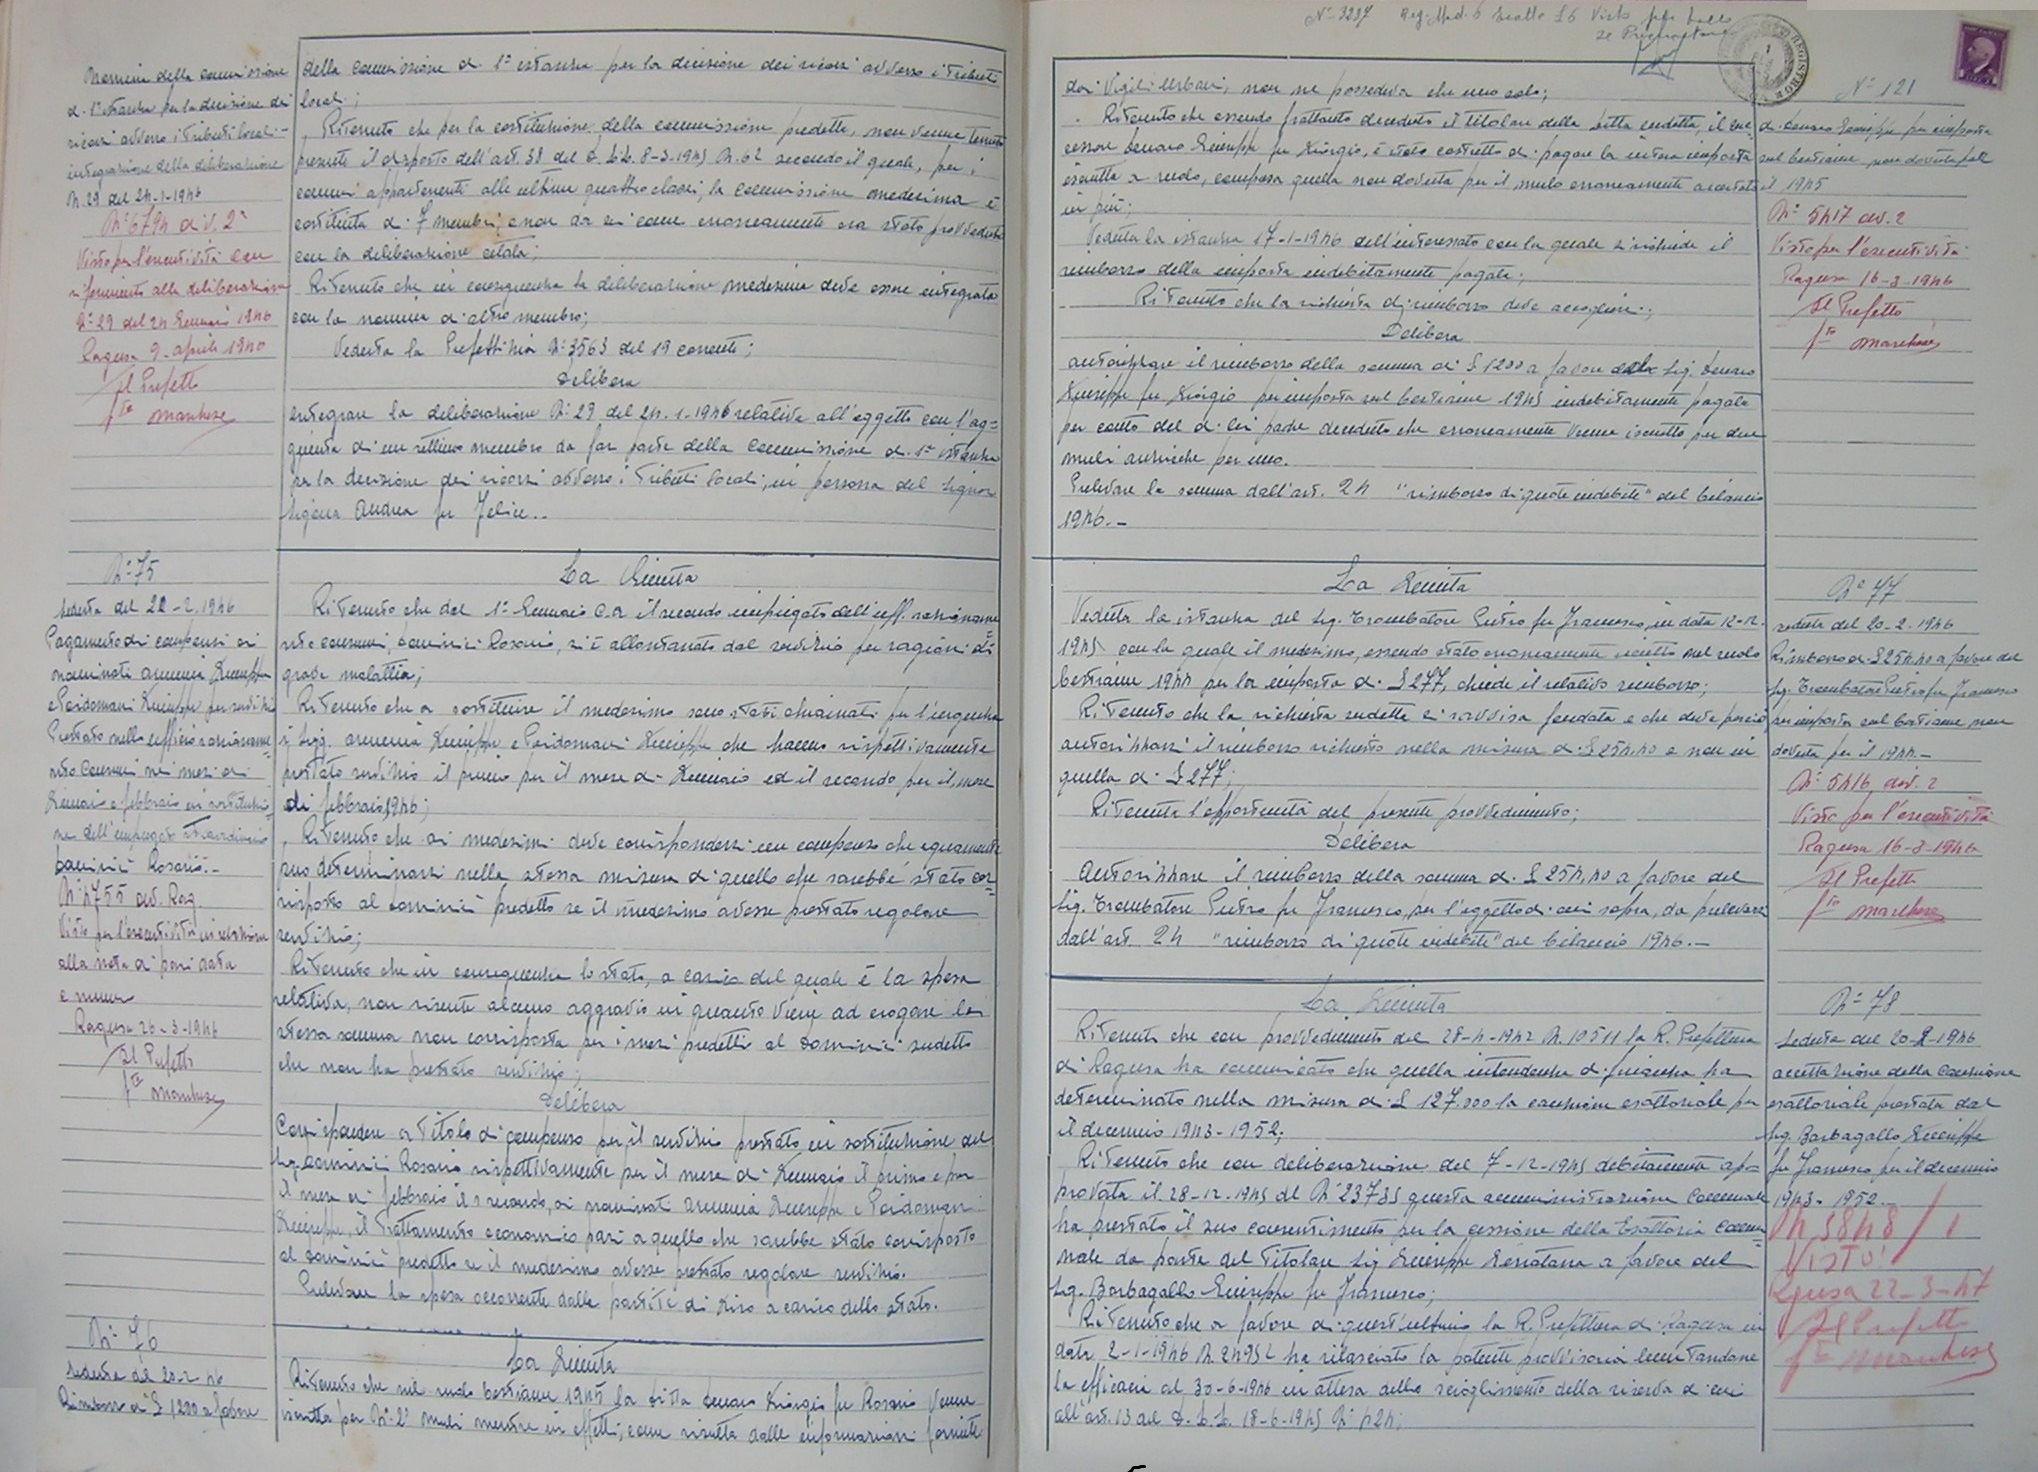 Nomina della commissione
di 1ª istanza per la decisione dei
ricorsi avverso i tributi locali -
integrazione della deliberazione
N. 29 del 24-1-1946
N° 6794 div. 2ª
Visto per l'esecutività con
riferimento alla deliberazione
N° 29 del 24 Gennaio 1946
Ragusa 9 aprile 1940
Il Prefetto
fto Marchese
della commissione di 1ª istanza per la decisione dei ricorsi avverso i tributi
locali;
Ritenuto che per la costituzione della commissione predetta, non venne tenuto
presente il disposto dell'art. 38 del D.L.L. 8-3-1945 N. 62 secondo il quale, per i
comuni appartenenti alle ultime quattro classi, la commissione medesima è
costituita di 7 membri e non da sei come erroneamente era stato provveduto
con la deliberazione citata;
Ritenuto che in conseguenza la deliberazione medesima deve essere integrata
con la nomina di altro membro;
Veduta la Prefettizia N° 3563 del 19 corrente;
Delibera
integrare la deliberazione N° 29 del 24.1.1946 relativa all'oggetto con l'ag=
giunta di un settimo membro da far parte della commissione di 1ª istanza
per la decisione dei ricorsi avverso i tributi locali, in persona del Signor
Andrea fu Felice..
N° 75
Seduta del 20-2-1946
Pagamento di compensi ai
nominati Giuseppe
Giuseppe per servizio
prestato nell'ufficio razioname
nto consumi nei mesi di
Gennaio e febbraio in sostituzio
ne dell'impiegato straordinario
Dominici Rosario.-
N° 4755 div. Rag.
Visto per l'esecutività in relazione
alla nota di pari data
e numero
Ragusa 26-3-1946
Il Prefetto
fto Marchese
La Giunta
Ritenuto che dal 1° Gennaio c.a. il secondo impiegato dell'uff. razioname
nto consumi, Dominici Rosario, si è allontanato dal servizio per ragioni di
grave malattia;
Ritenuto che a sostituire il medesimo sono stati chiamati per l'urgenza
i Sigg. Giuseppe e Giuseppe che hanno rispettivamente
prestato servizio il primo per il mese di Gennaio ed il secondo per il mese
di febbraio 1946;
Ritenuto che ai medesimi deve corrispondersi un compenso che equamente
può determinarsi nella stessa misura di quello che sarebbe stato cor=
risposto al Dominici predetto se il medesimo avesse prestato regolare
servizio;
Ritenuto che in conseguenza lo stato, a carico del quale è la spesa
relativa, non risente alcuno aggravio in quanto viene ad erogare la
stessa somma non corrisposta per i mesi predetti al Dominici sudetto
che non ha prestato servizio;
Delibera
Corrispondere a titolo di compenso per il servizio prestato in sostituzione del
Sig. Dominici Rosario rispettivamente per il mese di Gennaio il primo e per
il mese di febbraio il secondo, ai nominati Giuseppe e
Giuseppe, il trattamento economico pari a quello che sarebbe stato corrisposto
al Dominici predetto se il medesimo avesse prestato regolare servizio.
Prelevare la spesa occorrente dalle partite di giro a carico dello stato.
N° 76
Seduta del 20-2-46
Rimborso di £ 1200 a favore
La Giunta
Ritenuto che nel ruolo bestiame 1945 la ditta Giorgio fu Rosario venne
iscritta per N° 2 muli mentre in effetti, come risulta dalle informazioni fornite
N° 3237 Reg. Mod. 6 Visto per bollo
Il Procuratore
N° 121
dai Vigili Urbani, non ne possedeva che uno solo;
Ritenuto che essendo frattanto deceduto il titolare della ditta sudetta, il suc
cessore Giuseppe fu Giorgio, è stato costretto di pagare la intera imposta
iscritta a ruolo, compresa quella non dovuta per il mulo erroneamente accertato
in più;
Veduta la istanza 17-1-1946 dell'interessato con la quale si richiede il
rimborso della imposta indebitamente pagata;
Ritenuto che la richiesta di rimborso deve accogliersi;
Delibera
autorizzare il rimborso della somma di £ 1200 a favore del Sig.
Giuseppe fu Giorgio per imposta sul bestiame 1945 indebitamente pagata
per conto del di lui padre deceduto che erroneamente venne iscritto per due
muli anzicché per uno.
Prelevare la somma dall'art. 24 "rimborso di quote indebite" del bilancio
1946.-
di Giuseppe per imposta
sul bestiame non dovuta pel
il 1945
N° 5417 div. 2
Visto per l'esecutività
Ragusa 16-3-1946
Il Prefetto
fto Marchese
La Giunta
Veduta la istanza del Sig. Trombatore Pietro fu Francesco, in data 12-12-
1945 con la quale il medesimo, essendo stato erroneamente iscritto nel ruolo
bestiame 1944 per la imposta di £ 277, chiede il relativo rimborso;
Ritenuto che la richiesta sudetta si ravvisa fondata e che deve perciò
autorizzarsi il rimborso richiesto nella misura di £ 254,40 e non in
quella di £ 277;
Ritenuta l'opportunità del presente provvedimento;
Delibera
Autorizzare il rimborso della somma di £ 254,40 a favore del
Sig. Trombatore Pietro fu Francesco, per l'oggetto di cui sopra, da prelevarsi
dall'art. 24 "rimborso di quote indebite" del bilancio 1946.-
N° 77
seduta del 20-2-1946
Rimborso di £ 254,40 a favore del
Sig. Trombatore Pietro fu Francesco
per imposta sul bestiame non
dovuta per il 1944.-
N° 5416 div. 2
Visto per l'esecutività
Ragusa 16-3-1946
Il Prefetto
fto Marchese
La Giunta
Ritenuto che con provvedimento del 28-4-1942 N. 10511 la R. Prefettura
di Ragusa ha comunicato che quella intendenza di finanza ha
determinato nella misura di £ 127.000 la cauzione esattoriale per
il decennio 1943-1952;
Ritenuto che con deliberazione del 7-12-1945 debitamente ap=
provata il 28-12-1945 al N° 23735 questa amministrazione Comunale
ha prestato il suo consentimento per la cessione della Esattoria Comu=
nale da parte del titolare Sig. Giuseppe a favore del
Sig. Barbagallo Giuseppe fu Francesco;
Ritenuto che a favore di quest'ultimo la R. Prefettura di Ragusa in
data 2-1-1946 N. 24952 ha rilasciato la patente provvisoria limitandone
la efficacia al 30-6-1946 in attesa dello scioglimento della riserva di cui
all'art. 13 del D.L.L. 18-6-1945 N° 424;
N° 78
Seduta del 20-2-1946
accettazione della cauzione
esattoriale prestata dal
Sig. Barbagallo Giuseppe
fu Francesco per il decennio
1943-1952.-
N 3848 / 1
VISTO:
Ragusa 22-3-47
Il Prefetto
fto Marchese